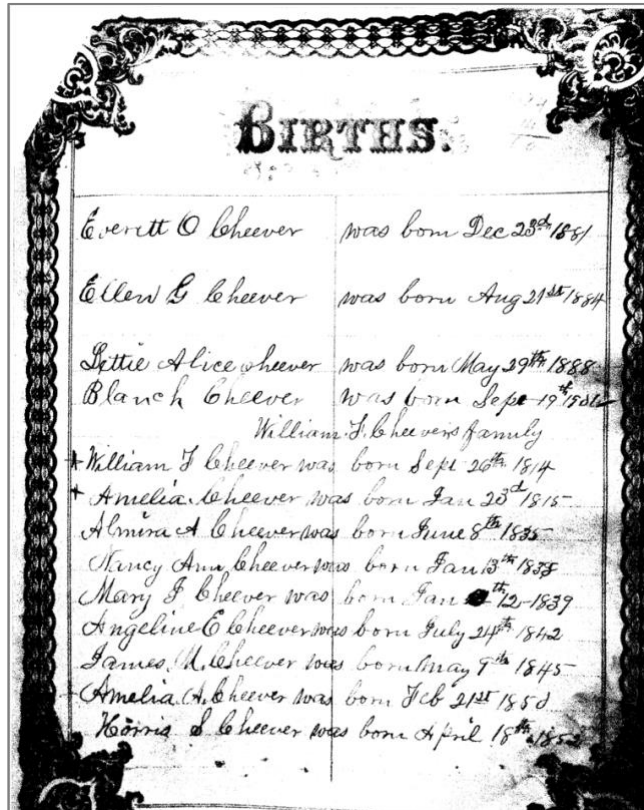 BIRTHS.
Everett O Cheever was born Dec 23rd 1881
Ellen G Cheever was born Aug 21st 1884
Alice Cheever was born May 29th 1888
Blanch Cheever was born Sept 19th
William F. Cheevers family
William F Cheever was born Sept 26th 1814
Amelia Cheever was born Jan 23rd 1815
Almira A Cheever was born June 8th 1835
Nancy Ann Cheever was born Jan 13th 1838
Mary F Cheever was born Jan th 12 1839
Angeline E Cheever was born July 24th 1842
James M. Cheever was born May 9th 1845
Amelia A. Cheever was born Feb 21st
S Cheever was born April 18th 1852